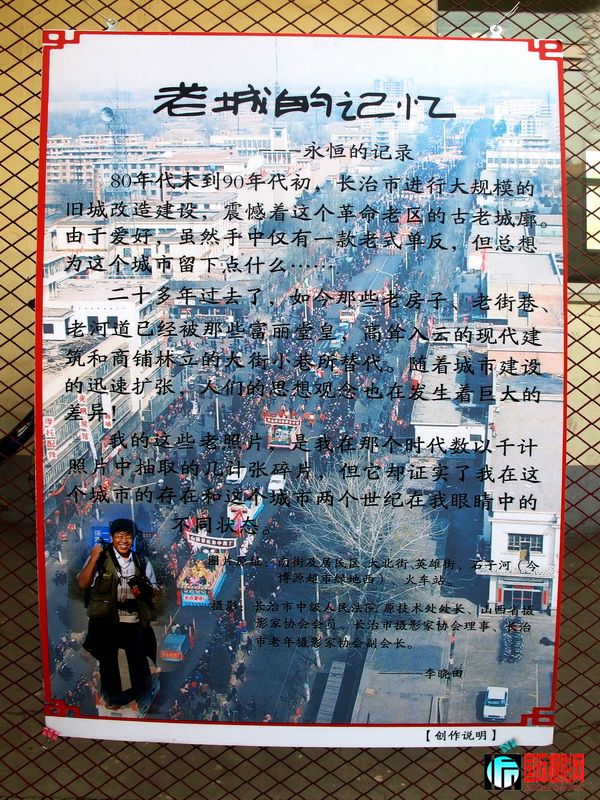 老城的记忆
——永恒的记录
80年代末到90年代初，长治市进行大规模的
旧城改造建设，震憾着这个革命老区的古老城廓。
由于爱好，虽然手中仅有一款老式单反，但总想
为这个城市留下点什么……
二十多年过去了，如今那些老房子、老街巷、
老河道已经被那些富丽堂皇，高耸入云的现代建
筑和商铺林立的大街小巷所替代。随着城市建设
的迅速扩张，人们的思想观念也在发生着巨大的
差异！
我的这些老照片——是我在那个时代数以千计
照片中抽取的几计张碎片，但它却证实了我在这
个城市的存在和这个城市两个世纪在我眼睛中的
不同状态。
图片原址：南街及居民区、大北街、英雄街、石子河（今
博源超市绿地西）、火车站。
摄影：长治市中级人民法院 原技术处处长、山西省摄
影家协会会员、长治市摄影家协会理事、长治
市老年摄影家协会副会长。
——李晓田
【创作说明】